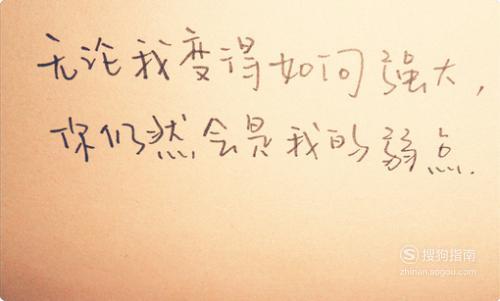 无论我变得如何强大，
你仍然会是我的弱点.
搜狗指南
zhinan.sogou.com